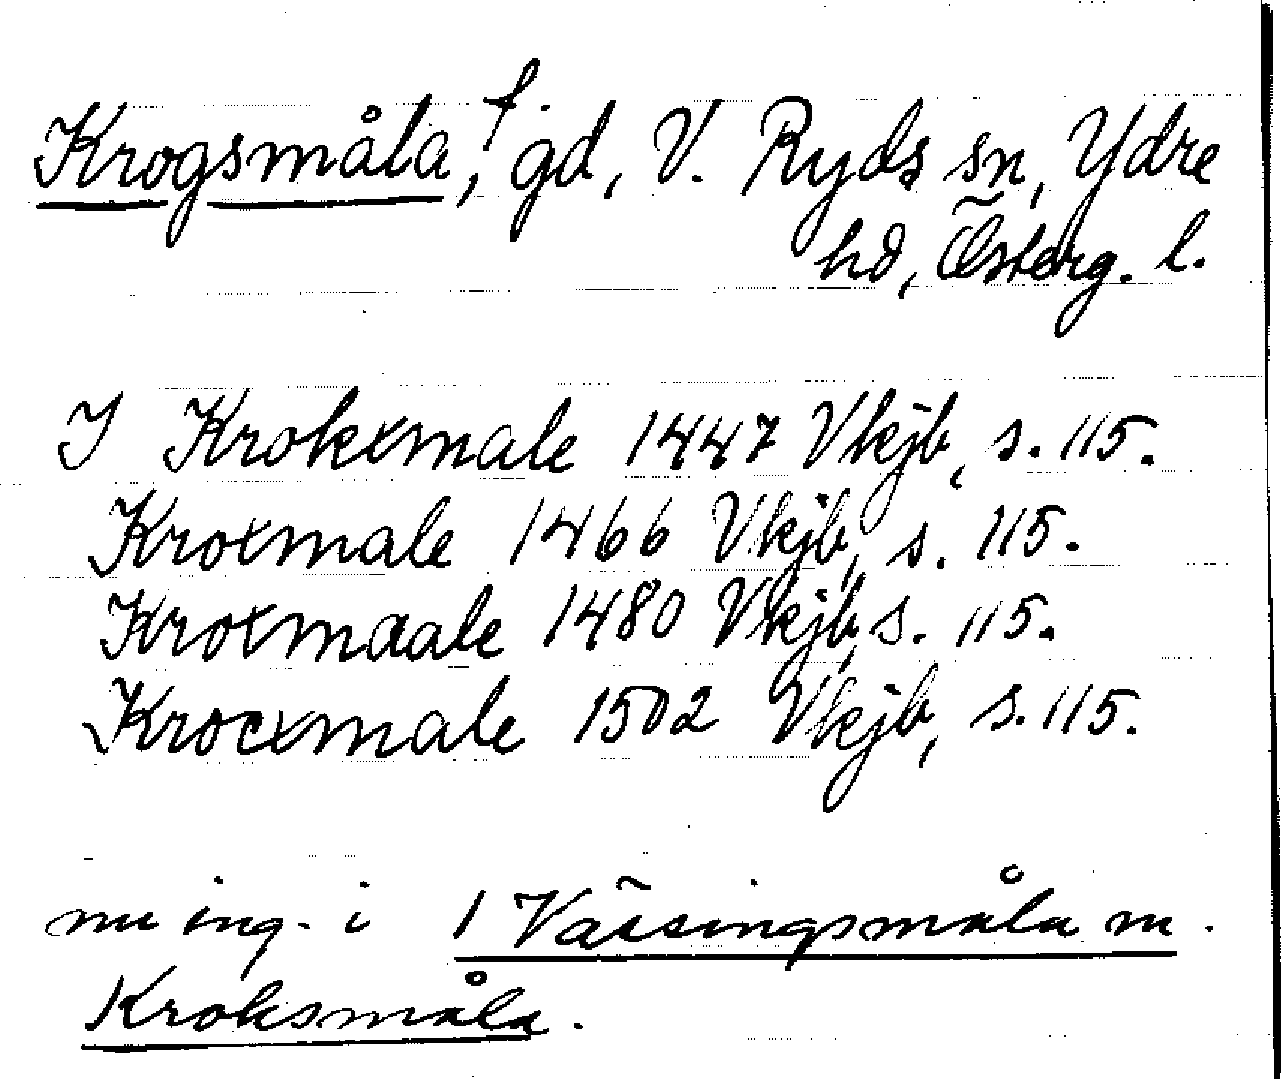 Krogsmåla, f. gd, V. Ryds sn, Ydre
hd, Österg. l.
I Krokxmale 1447 Vkjb, s. 115.
Kroxmale 1466 Vkjb, s. 115.
Kroxmaale 1480 Vkjb, s. 115.
Krocxmale 1502 Vkjb, s. 115.
nu ing. i 1 Vässingsmåla m.
Kroksmåla.